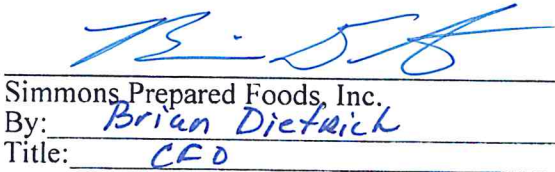 Simmons Prepared Foods, Inc.
By: Brian Dietrich
Title: CFO